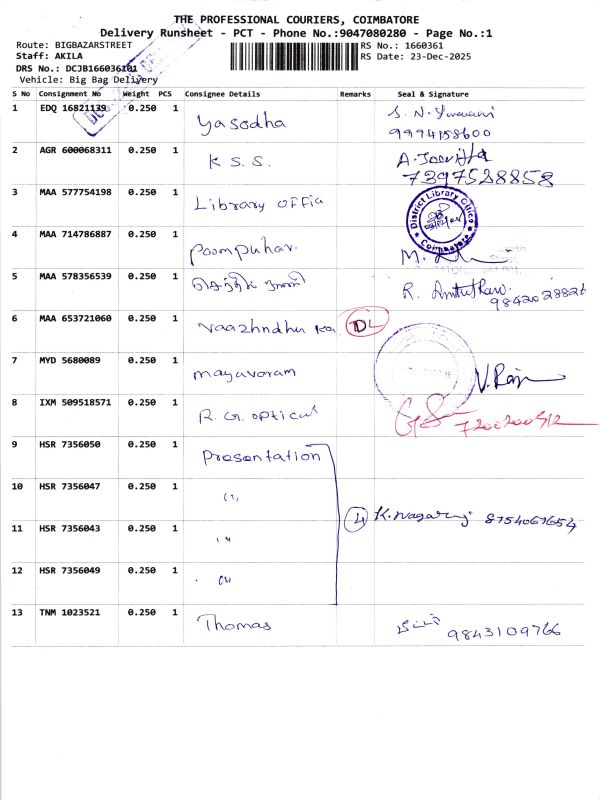 THE PROFESSIONAL COURIERS, COIMBATORE
Delivery Runsheet - PCT - Phone No.:9047080280 - Page No.:1
Route: BIGBAZARSTREET
Staff: AKILA
DRS No.: DCJB166036101
Vehicle: Big Bag Delivery
RS No.: 1660361
RS Date: 23-Dec-2025
S No Consignment No Weight PCS Consignee Details Remarks Seal & Signature
1 EDQ 16821139 0.250 1 Yasodha S. N.
9994158600
2 AGR 600068311 0.250 1 K S. S. A.
7397528858
3 MAA 577754198 0.250 1 Library offia District Library Office Coimbatore
4 MAA 714786887 0.250 1 Poompuhar. M.
5 MAA 578356539 0.250 1 செந்தில் R.
9842028826
6 MAA 653721060 0.250 1 Vaazhndhu ka DL
7 MYD 5680089 0.250 1 mayavaram V. Raja
8 IXM 509518571 0.250 1 R. G. optical
9 HSR 7356050 0.250 1 Presentation
10 HSR 7356047 0.250 1 "
4 K. Nagaraj 8754067654
11 HSR 7356043 0.250 1 "
12 HSR 7356049 0.250 1 "
13 TNM 1023521 0.250 1 Thomas 9843109766